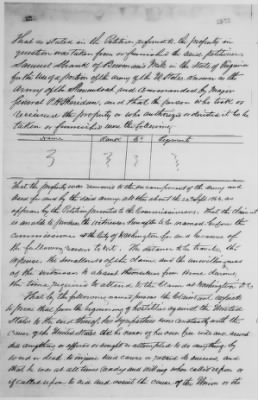 That as stated in the Petition referred to the property in
question was taken from or furnished the said petitioner
Samuel Shank of Bowmans Mill in the State of Virginia
for the use of a portion of the army of the U States known as the
Army of the Shenandoah and commanded by Major
General P H Sheridan, and that the person who took or
received the property or who authorized or directed it to be
taken or furnished were the following
Name Rank Co Regiment
That the property was removed to the encampment of the army and
used for and by the said army, all this about the Sept 1864, as
appears by the Petition presented to the Commissioners. That the claimant
is unable to produce the witnesses to be named before the
commissioners at the City of Washington for and by reason of
the following causes to wit. The distance to be traveled the
expense the smallness of the claim and the unwillingness
of the witnesses to absent themselves from home during
the time required to attend to the Claim at Washington D.C.
That by the following named persons the Claimant expects
to prove that from the beginning of hostilities against the United
States to the end thereof, his sympathies were constantly with the
cause of the United States that he never of his own free will and accord
did anything or offered or sought or attempted to do anything by
word or deed to injure said cause or retard its success and
that he was at all times ready and willing when called upon or
if called upon to aid and assist the cause of the Union or the